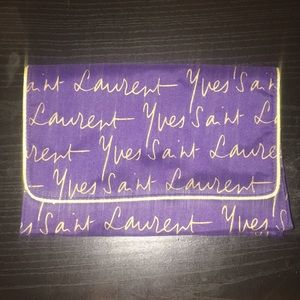 aint Laurent Yves Saint
Laurent Yves Saint Lau
rent Yves Saint Laure
Yves Saint Laurent
s Saint Laurent Yves Sa